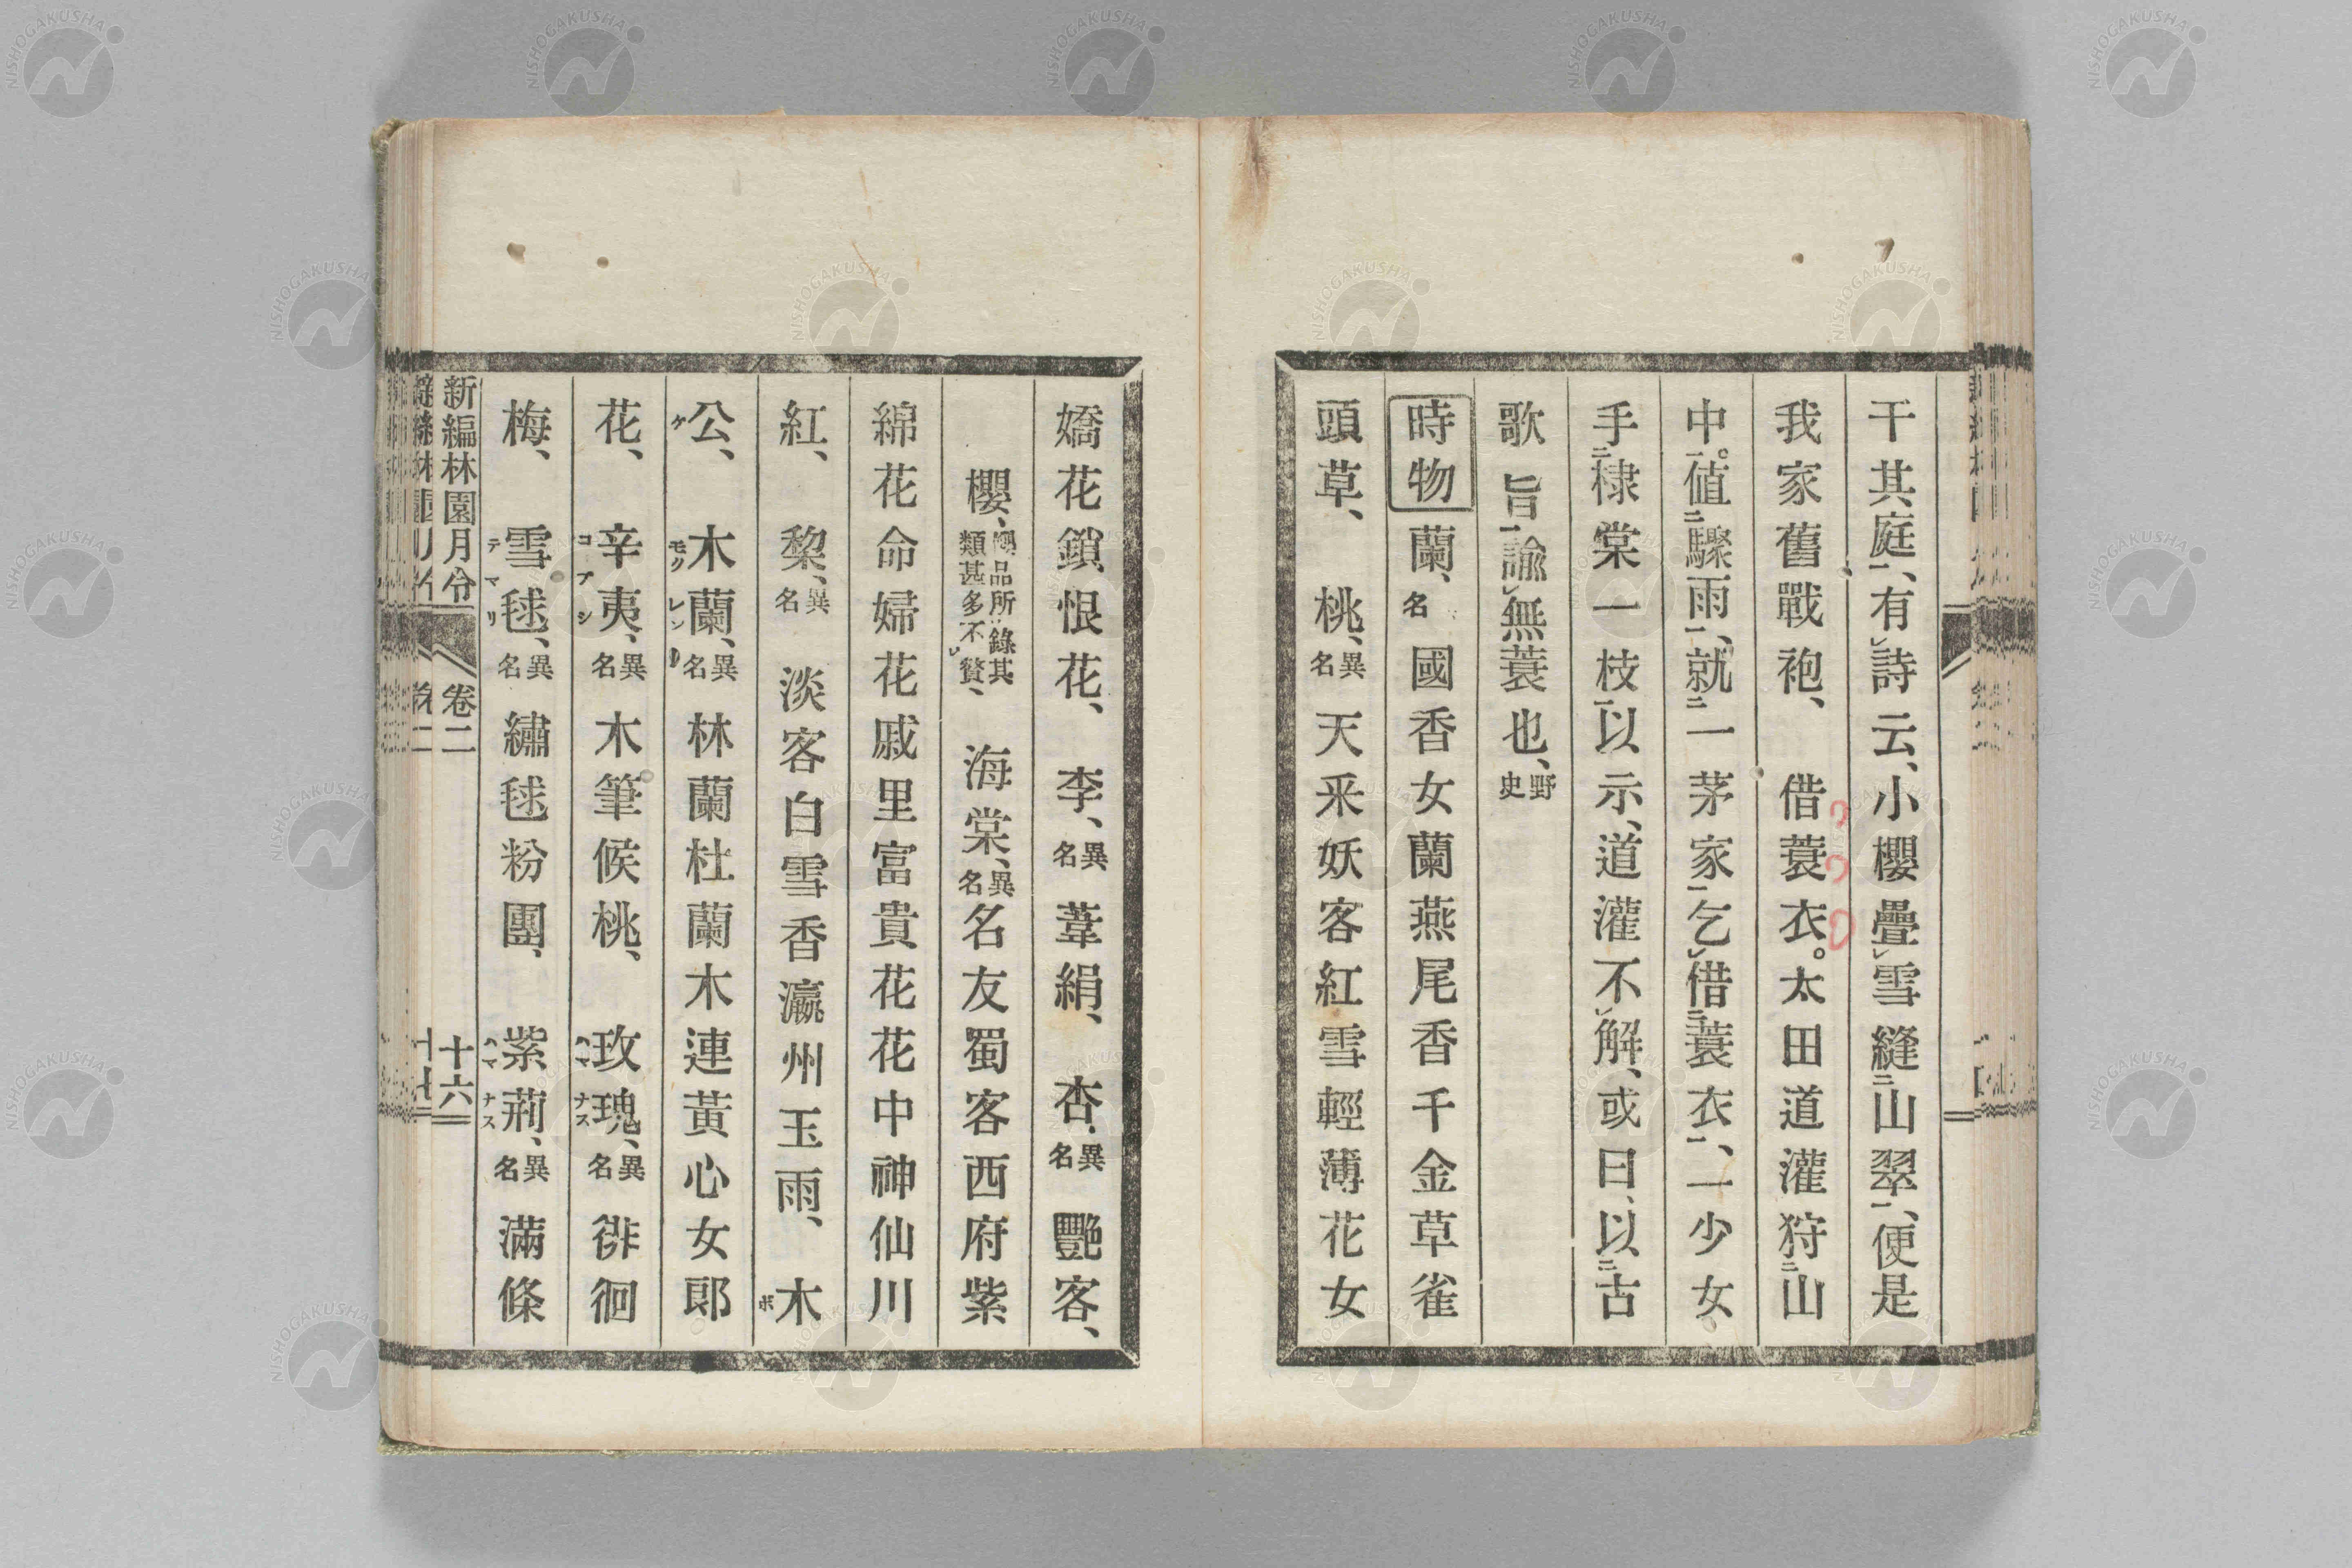 干其庭一、有㆑詩云、小櫻疊㆑雪縫㆓山翠㆒、便是
我家舊戰袍、　借蓑衣。太田道灌狩㆓山
中㆒。值㆓驟雨㆒、就㆓一茅家㆒乞㆑借㆓蓑衣㆒、一少女、
手㆓棣棠一枝㆒以示、道灌不㆑解、或曰、以㆓古
歌旨㆒諭㆑無蓑也、野史
時物　蘭、名國香女蘭燕尾香千金草雀
頭草、　桃、異名天釆妖客紅雪輕薄花女
嬌花鎖恨花、　李、異名葦絹、　杏、異名艷客、
櫻、品所㆑錄其類甚多不㆑贅、　海棠、異名名友蜀客西府紫
綿花命婦花戚里富貴花花中神仙川
紅、　黎、異名　淡客白雪香瀛州玉雨、　木ボ
公、ケ　木蘭、モクレン異名林蘭杜蘭木連黃心女郞
花、　辛夷、コブシ異名木筆候桃、　玫瑰、ハマナス異名徘徊
梅、　雪毬、テマリ異名繡毬粉團、　紫荊、ハマナス異名滿條
新編林園月令　卷二　十六
NISHOGAKUSHA